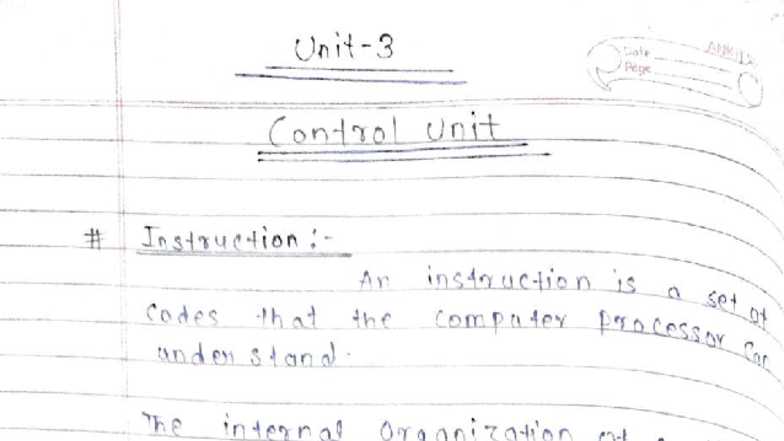 Unit-3
Date
Page
Control Unit
# Instruction :-
An instruction is a set of
codes that the computer processor can
understand.
The internal organization of